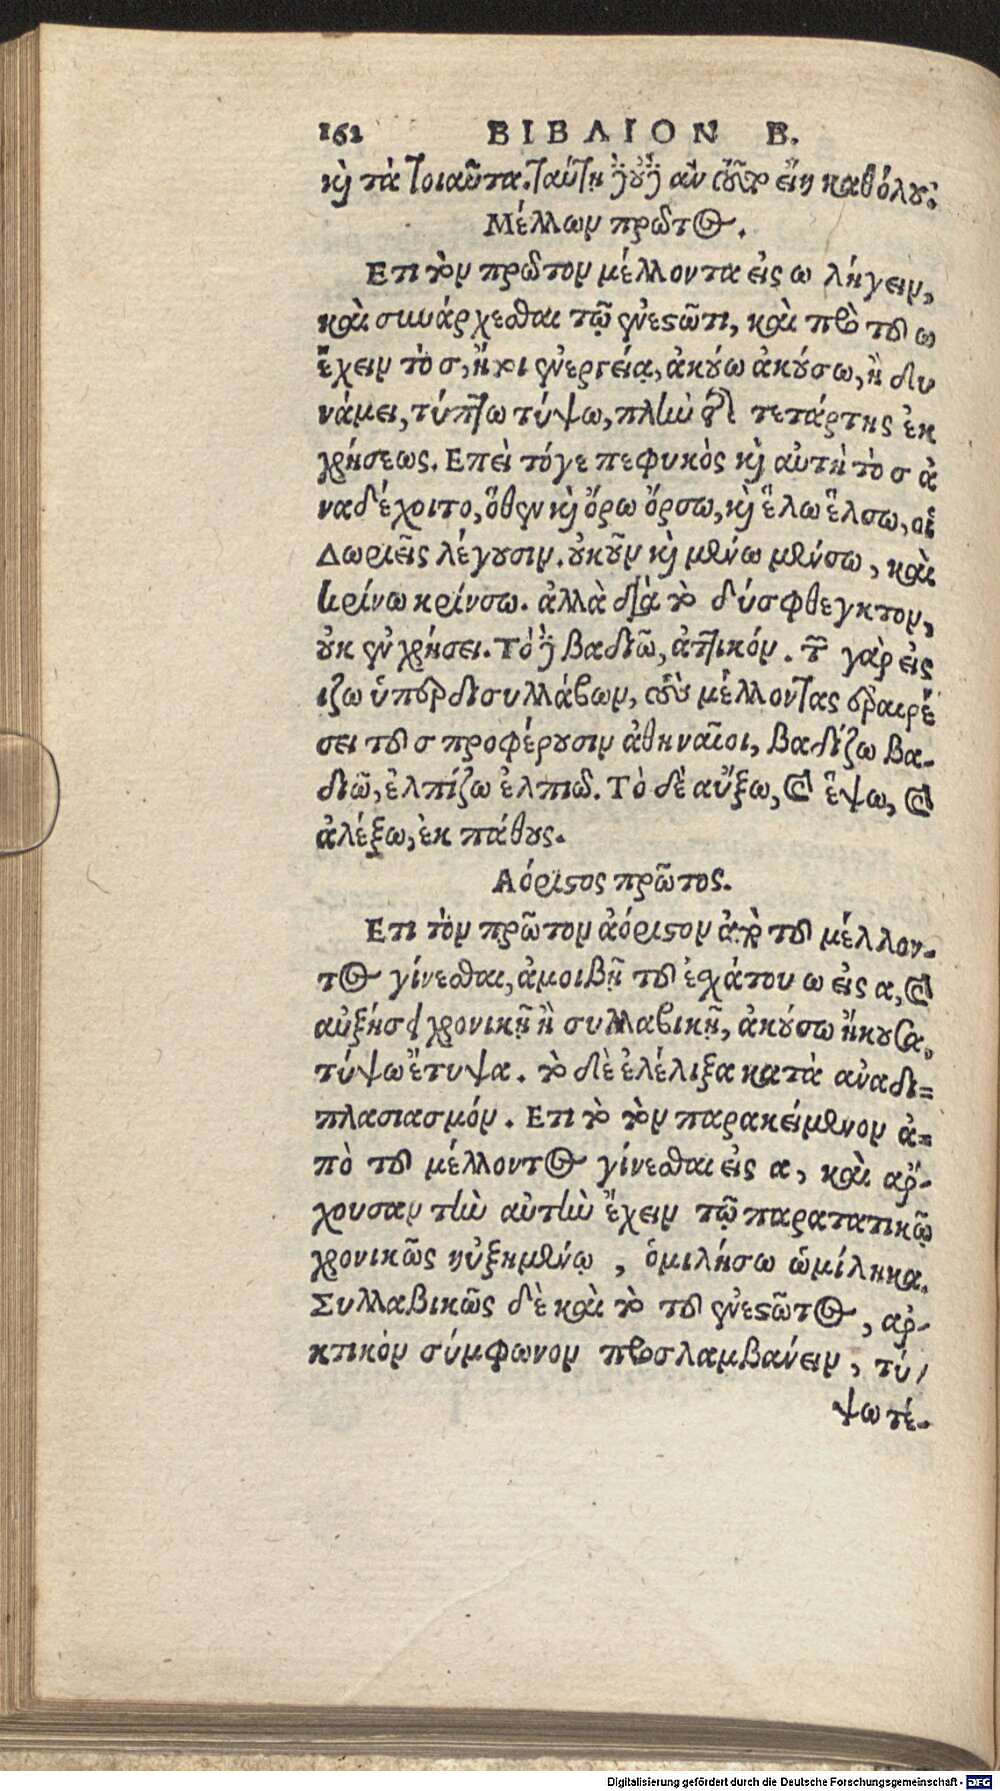 162 ΒΙΒΛΙΟΝ Β.
καὶ τὰ τοιαῦτα. ταύτη δ' οὖν ἂν εἴη καθόλου.
Μέλλων πρῶτος.
Ετι τὸν πρῶτον μέλλοντα εἰς ω λήγειν,
καὶ συνάρχεσθαι τῷ ἐνεστῶτι, καὶ πρὸ τοῦ ω
ἔχειν τὸ σ, ἤτοι ἐνεργείᾳ, ἀκούω ἀκούσω, ἢ δυ
νάμει, τύπτω τύψω, πλὴν τῆς τετάρτης ἐκ
χρήσεως. Επεὶ τόγε πεφυκὸς καὶ αὐτὴ τὸ σ ἀ
ναδέχοιτο, ὅθεν καὶ ὄρω ὄρσω, καὶ ἔλω ἔλσω, οἱ
Δωριεῖς λέγουσιν. οὐκοῦν καὶ μενύω μενύσω, καὶ
κρίνω κρίνσω. ἀλλὰ διὰ τὸ δύσφθεγκτον,
οὐκ ἐν χρήσει. Τὸ δὲ βαδιῶ, ἀττικόν. τῶν γὰρ εἰς
ιζω ὑπὲρ δισυλλάβων, τοὺς μέλλοντας ἀφαιρέ
σει τοῦ σ προφέρουσιν ἀθηναῖοι, βαδίζω βα-
διῶ, ἐλπίζω ἐλπιῶ. Τὸ δὲ αὔξω, καὶ ἕψω, καὶ
ἀλέξω, ἐκ πάθους.
Αόριστος πρῶτος.
Ετι τὸν πρῶτον ἀόριστον ἀπὸ τοῦ μέλλον-
τος γίνεσθαι, ἀμοιβῇ τοῦ ἐσχάτου ω εἰς α, καὶ
αὐξήσει χρονικῇ ἢ συλλαβικῇ, ἀκούσω ἤκουσα,
τύψω ἔτυψα. τὸ δὲ ἐλέλιξα κατὰ ἀναδι=
πλασιασμόν. Ετι τὸ τὸν παρακείμενον ἀ=
πὸ τοῦ μέλλοντος γίνεσθαι εἰς α, καὶ ἄρ-
χουσαν τὴν αὐτὴν ἔχειν τῷ παρατατικῷ
χρονικῶς ηὐξημένῳ, ὁμιλήσω ὡμίληκα.
Συλλαβικῶς δὲ καὶ τὸ τοῦ ἐνεστῶτος, ἀρ-
κτικὸν σύμφωνον προσλαμβάνειν, τύ/
ψω τέ-
Digitalisierung gefördert durch die Deutsche Forschungsgemeinschaft - DFG